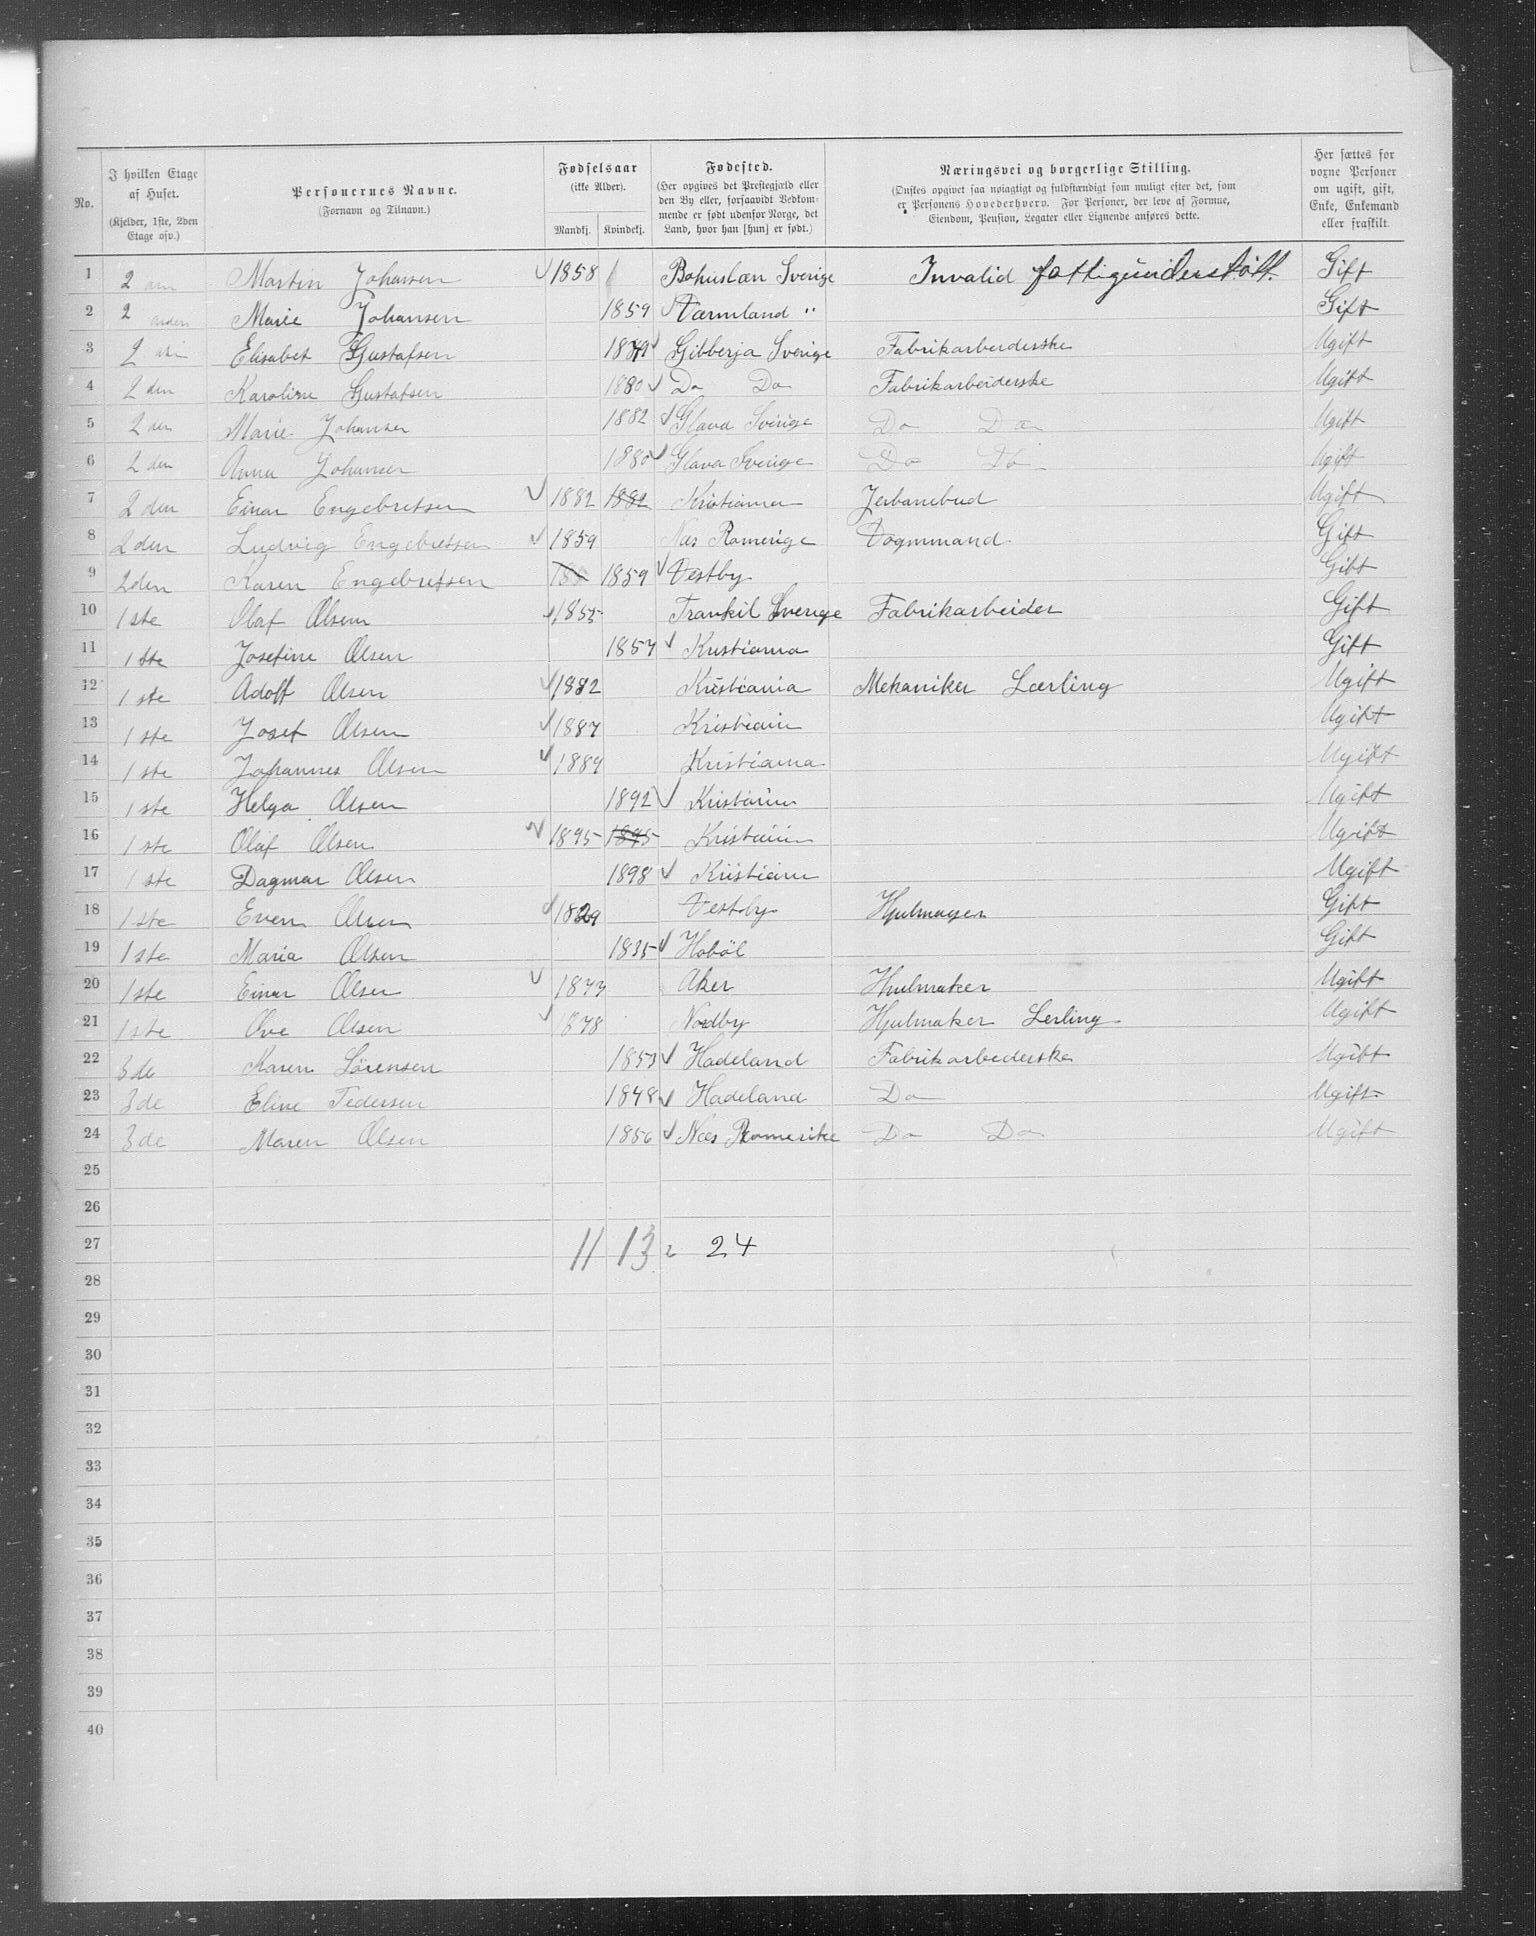 No.
I hvilken Etage af Huset. (Kjelder, 1ste, 2den Etage osv.)
Personernes Navne. (Fornavn og Tilnavn.)
Fødselsaar (ikke Alder). Mandkj. Kvindekj.
Fødested. (Her opgives det Prestegjæld eller den By eller, forsaavidt Vedkommende er født udenfor Norge, det Land, hvor han [hun] er født.)
Næringsvei og borgerlige Stilling. (Ønskes opgivet saa nøiagtigt og fuldstændigt som muligt efter det, som er Personens Hovederhverv. For Personer, der leve af Formue, Eiendom, Pension, Legater eller Lignende anføres dette.
Her sættes for voxne Personer om ugift, gift, Enke, Enkemand eller fraskilt.
1 2 Martin Johansen 1858 Bohuslæn Sverige Invalid fattigunderstøtt. Gift
2 2 anden Marie Johansen 1859 Værmland " Gift
3 2 Elisabet Gustafsen Gibberja Sverige Fabrikarbeiderske Ugift
4 2 den Karoline Gustafsen 1880 Do Do Fabrikarbeiderske Ugift
5 2 den Marie Johansen 1882 Glava Sverige Do Do Ugift
6 2 den Anna Johansen 1880 Glava Sverige Do Do Ugift
7 2 den Einar Engebretsen 1882 1882 Kristiania Jerbanebud Ugift
8 2den Ludvig Engebretsen 1859 Næs Romerige Vognmand Gift
9 2den Karen Engebretsen 1859 Vestby Gift
10 1ste Olaf Olsen 1855 Trankil Sverige Fabrikarbeider Gift
11 1ste Josefine Olsen 1857 Kristiania Gift
12 1ste Adolf Olsen 1882 Kristiania Mekaniker Lærling Ugift
13 1ste Josef Olsen 1887 Kristiania Ugift
14 1ste Johannes Olsen 1889 Kristiania Ugift
15 1ste Helga Olsen 1892 Kristiania Ugift
16 1ste Olaf Olsen 1895 1895 Kristiania Ugift
17 1ste Dagmar Olsen 1898 Kristiania Ugift
18 1ste Even Olsen 1829 Vestby Hjulmager Gift
19 1ste Maria Olsen 1835 Hobøl Gift
20 1ste Einar Olsen 1877 Aker Hjulmaker Ugift
21 1ste Ove Olsen 1878 Nordby Hjulmaker Lerling Ugift
22 3de Karen Sörensen 1853 Hadeland Fabrikarbederske Ugift
23 3de Eline Pedersen 1848 Hadeland Do Ugift
24 3de Maren Olsen 1856 Næs Romerike Do Do Ugift
25
26
27 11 13 = 24
28
29
30
31
32
33
34
35
36
37
38
39
40